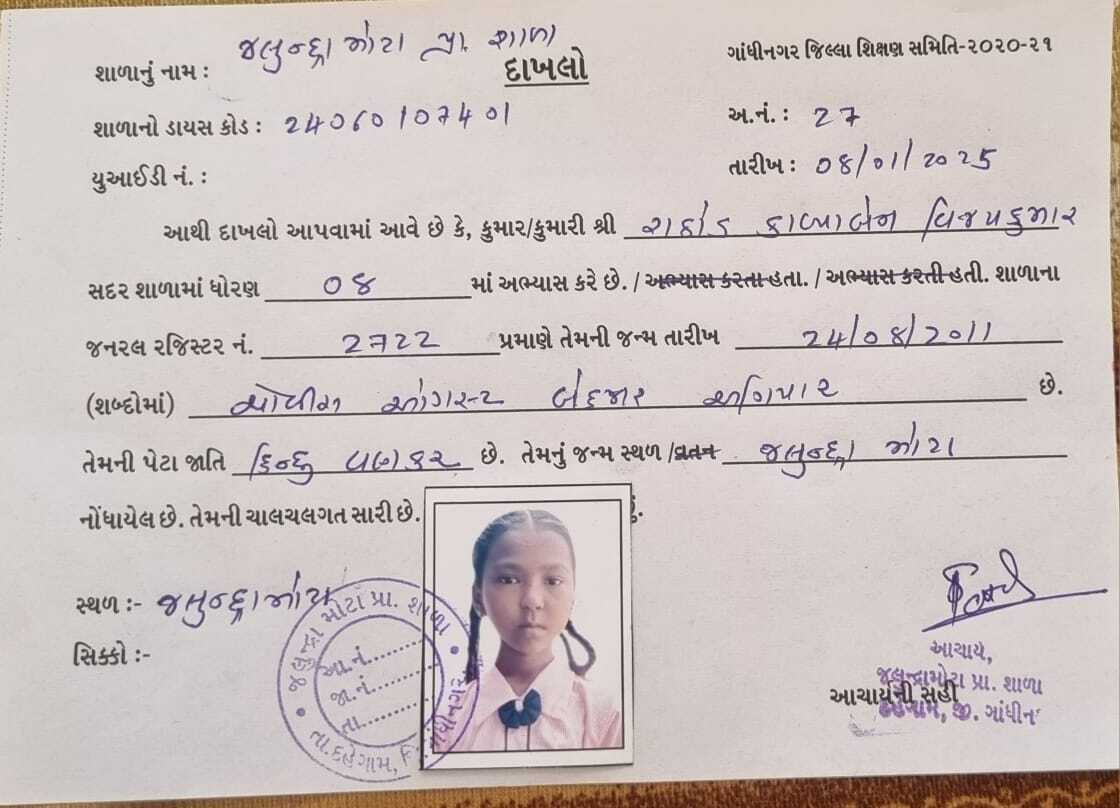 જલુન્દ્રા મોટા પ્રા. શાળા
શાળાનું નામ :
દાખલો
ગાંધીનગર જિલ્લા શિક્ષણ સમિતિ-૨૦૨૦-૨૧
શાળાનો ડાયસ કોડ : 24060107401
અ.નં. : 27
યુઆઈડી નં. :
તારીખ : 08/01/2025
આથી દાખલો આપવામાં આવે છે કે, કુમાર/કુમારી શ્રી રાઠોડ કાવ્યાબેન વિજયકુમાર
સદર શાળામાં ધોરણ 08 માં અભ્યાસ કરે છે. / અભ્યાસ કરતા હતા. / અભ્યાસ કરતી હતી. શાળાના
જનરલ રજિસ્ટર નં. 2722 પ્રમાણે તેમની જન્મ તારીખ 24/08/2011
(શબ્દોમાં) ચોવીસ ઓગસ્ટ બેહજાર અગિયાર છે.
તેમની પેટા જાતિ હિન્દુ વણકર છે. તેમનું જન્મ સ્થળ /વતન જલુન્દ્રા મોટા
નોંધાયેલ છે. તેમની ચાલચલગત સારી છે.
સ્થળ :- જલુન્દ્રા મોટા
સિક્કો :-
જલુન્દ્રા મોટા પ્રા. શાળા
આ.નં.
જા.નં.
તા.
તા.દહેગામ,
ગાંધીનગર
આચાર્ય,
જલુન્દ્રામોટા પ્રા. શાળા
આચાર્યની સહી
દહેગામ, જી. ગાંધીન